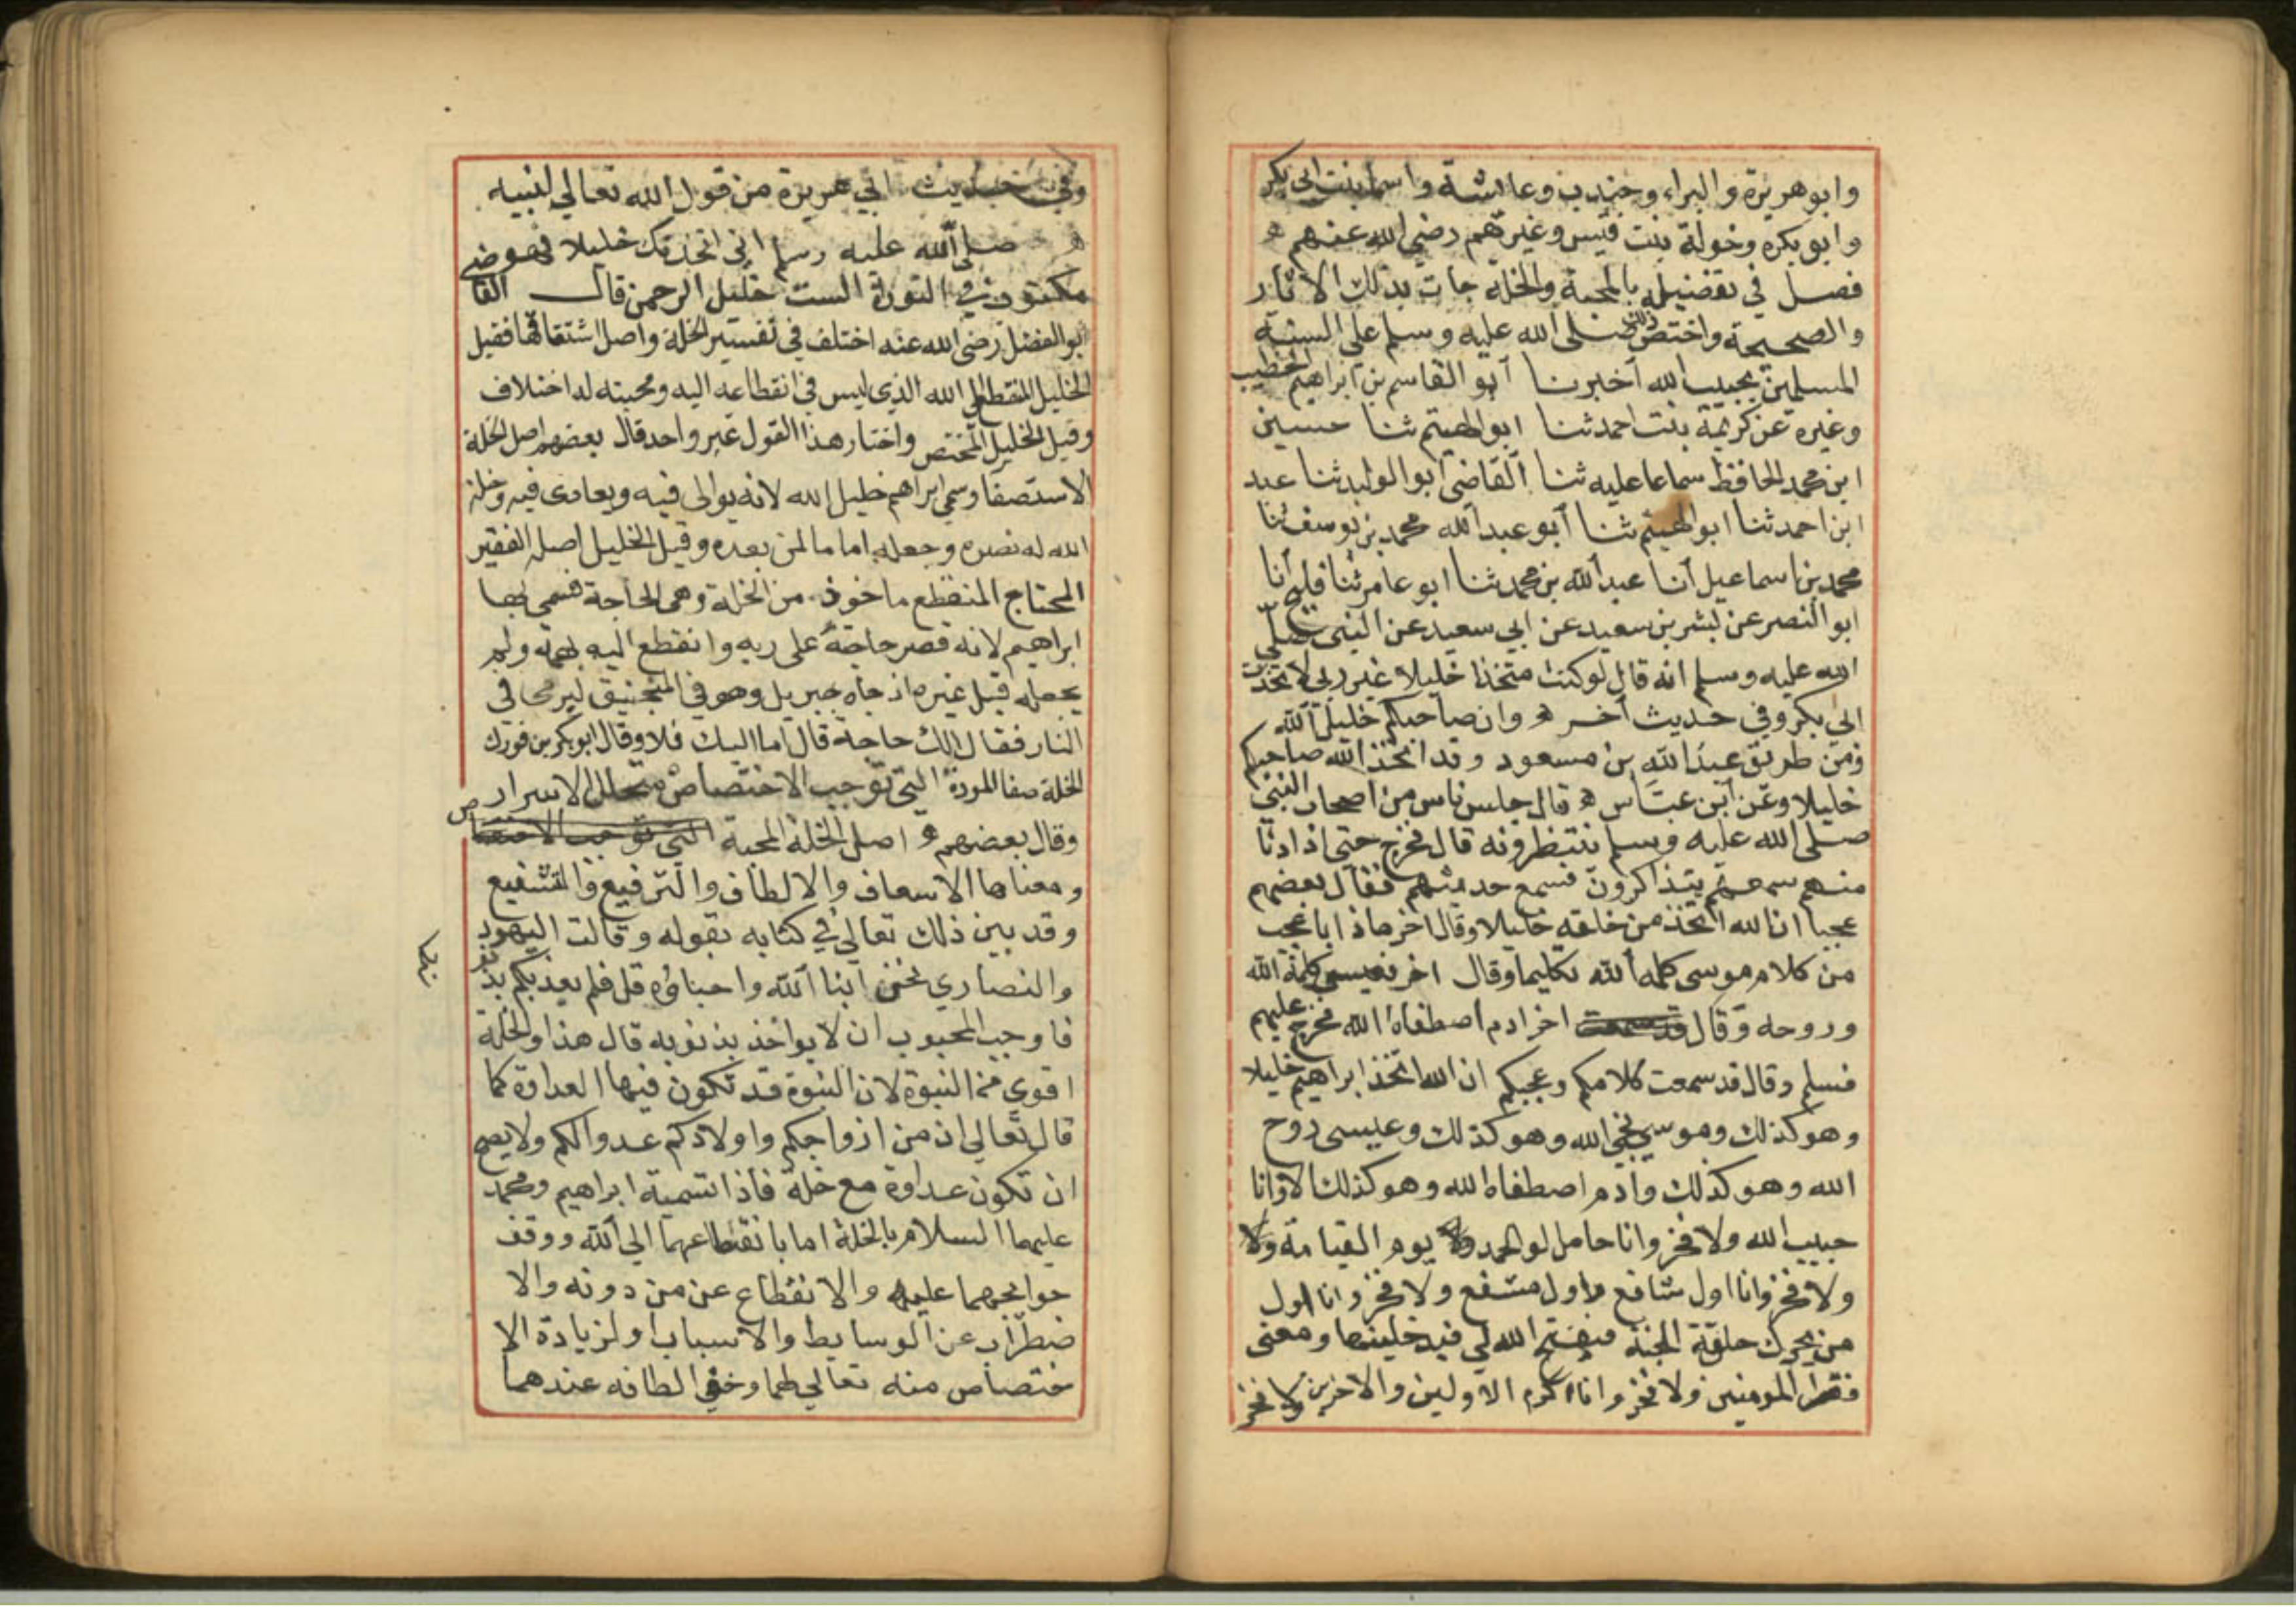 وابو هريرة والبراء وجندب وعائشة واسما بنت ابي بكر
وابو بكره وخولة بنت قيس وغيرهم رضي الله عنهم
فصل في تفضيله بالمحبة والخلة جات بذلك الاثار
والصحيحة واختص صلى الله عليه وسلم على السنة
المسلمين بحبيب الله أخبرنا أبو القاسم بن ابراهيم الخطيب
وغيره عن كريمة بنت احمد ثنا ابو الهيثم ثنا حسين
ابن محمد الحافظ سماعا عليه ثنا القاضي ابو الوليد ثنا عبد
ابن احمد ثنا ابو الهيثم ثنا أبو عبد الله محمد بن يوسف ثنا
محمد بن اسماعيل أنا عبد الله بن محمد ثنا ابو عامر ثنا فليح أنا
ابو النصر عن بشر بن سعيد عن ابي سعيد عن النبي صلى
الله عليه وسلم انه قال لو كنت متخذا خليلا غير ربي لاتخذت
ابي بكر وفي حديث آخر وان صاحبكم خليل الله
ومن طريق عبد الله بن مسعود وقد اتخذ الله صاحبكم
خليلا وعن ابن عباس قال جلس ناس من اصحاب النبي
صلى الله عليه وسلم ينتظرونه قال فخرج حتى اذا دنا
منهم سمعهم يتذاكرون فسمع حديثهم فقال بعضهم
عجبا ان الله اتخذ من خلقه خليلا وقال اخر ماذا باعجب
من كلام موسى كلمه الله تكليما وقال اخر فعيسى كلمة الله
وروحه وقال اخر ادم اصطفاه الله فخرج عليهم
فسلم وقال قد سمعت كلامكم وعجبكم ان الله اتخذ ابراهيم خليلا
وهو كذلك وموسى نجي الله وهو كذلك وعيسى روح
الله وهو كذلك وادم اصطفاه الله وهو كذلك الا وانا
حبيب الله ولا فخر وانا حامل لو الحمد يوم القيامة ولا
ولا فخر وانا اول شافع واول مشفع ولا فخر وانا اول
من يحرك حلقة الجنة فيفتح الله لي فيدخلينها ومعي
فقرا المومنين ولا فخر وانا اكرم الاولين والاخرين ولا فخر
وفي حديث ابي هريرة من قول الله تعالى لنبيه
صلى الله عليه وسلم اني اتخذتك خليلا فهو
مكتوب في التوراة خليل الرحمن قال القا
ابو الفضل رضي الله عنه اختلف في تفسير الخلة واصل اشتقاقها فقيل
الخليل المنقطع الى الله الذي ليس في انقطاعه اليه ومحبته له اختلاف
وقيل الخليل المختص واختار هذا القول غير واحد قال بعضهم اصل الخلة
الاستصفا وسمي ابراهيم خليل الله لانه يوالي فيه ويعادى فيه وخلة
الله له نصره وجعله اماما لمن بعده وقيل الخليل اصله الفقير
المحتاج المنقطع ماخوذ من الخلة وهي الحاجة فسمي بها
ابراهيم لانه قصر حاجته على ربه وانقطع اليه بهمه ولم
يجعله قبل غيره اذ جاه جبريل وهو في المنجنيق ليرمى في
النار فقال الك حاجة قال اما اليك فلا وقال ابو بكر بن فورك
الخلة صفا المودة التي توجب الاختصاص بتخلل الاسرار
وقال بعضهم اصل الخلة المحبة التي توجب الاختصاص
ومعناها الاسعاف والالطاف والترفيع والتشفيع
وقد بين ذلك تعالى في كتابه بقوله وقالت اليهود
والنصارى نحن ابنا الله واحباؤه قل فلم يعذبكم بذنو
بكم
فاوجب المحبوب ان لا يواخذ بذنوبه قال هذا والخلة
اقوى من النبوة لان النبوة قد تكون فيها العداوة كما
قال تعالى ان من ازواجكم واولادكم عدوا لكم ولا يصح
ان تكون عداوة مع خلة فاذا تسمية ابراهيم ومحمد
عليهما السلام بالخلة اما بانقطاعهما الى الله ووقف
حوائجهما عليه والانقطاع عن من دونه والا
ضطراب عن الوسايط والاسباب او لزيادة الا
ختصاص منه تعالى لهما وخفي الطافه عندهما